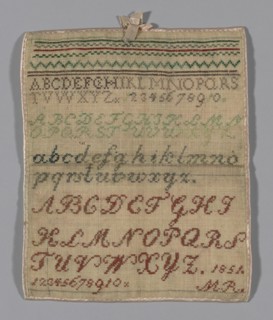 ABCDEFGHIKLMNOPQRS
TVUWXYZ. 12345678910.
ABCDEFGHIKLMN
OPQRSTUVWXYZ
abcdefghiklmno
pqrstuvwxyz.
ABCDEFGHI
KLMNOPQRS
TUVWXYZ. 1851.
12345678910. M.R.